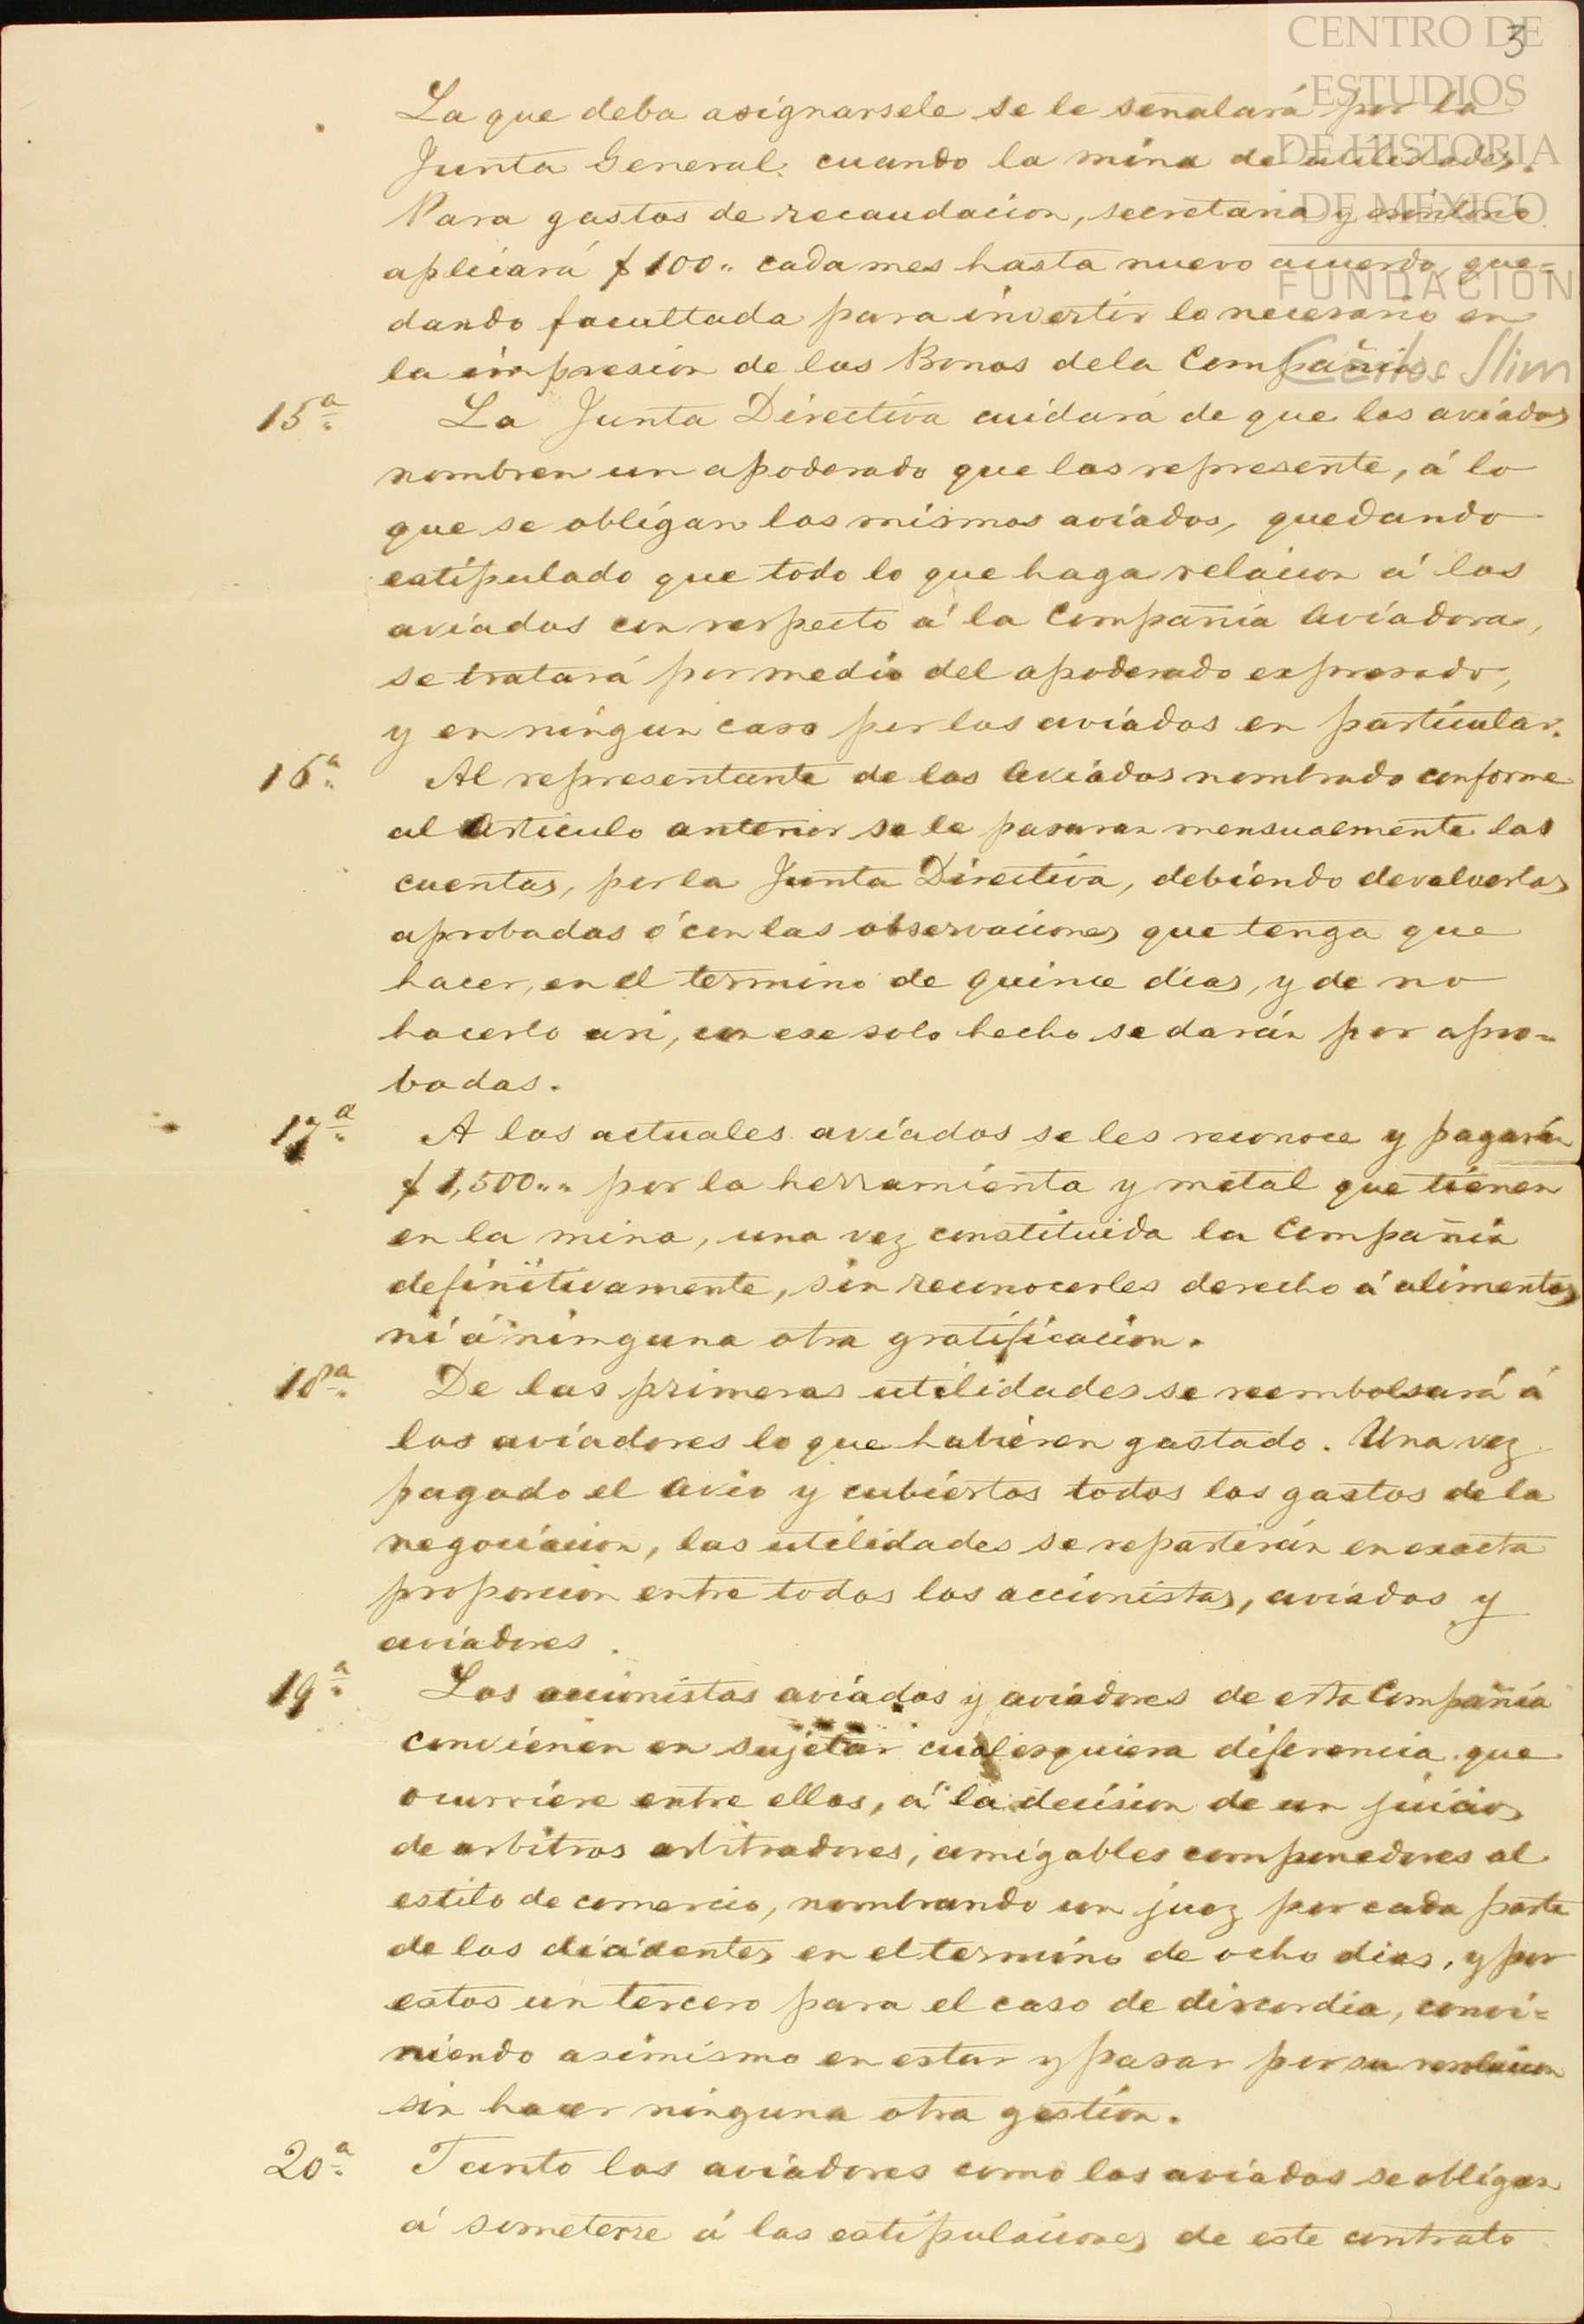 3
CENTRO DE
ESTUDIOS
DE HISTORIA
DE MÉXICO
FUNDACIÓN
Carlos Slim
La que deba asignarsele se le señalará por la
Junta General, cuando la mina dé utilidades.
Para gastos de recaudacion, secretaria y escritorio
aplicará $100.. cada mes hasta nuevo acuerdo, que=
dando facultada para invertir lo necesario en
la impresion de los Bonos de la Compañia.
15ª La Junta Directiva cuidará de que los aviados
nombren un apoderado que los represente, á lo
que se obligan los mismos aviados, quedando
estipulado que todo lo que haga relacion á los
aviados con respecto á la Compañia Aviadora,
se tratará por medio del apoderado expresado,
y en ningun caso por los aviados en particular.
16ª Al representante de los Aviados nombrado conforme
al Articulo anterior se le pasaran mensualmente las
cuentas, por la Junta Directiva, debiendo devolverlas
aprobadas ó con las observaciones que tenga que
hacer, en el termino de quince dias, y de no
hacerlo asi, con ese solo hecho se darán por apro=
badas.
17ª A los actuales aviados se les reconoce y pagarán
$1,500.. por la herramienta y metal que tienen
en la mina, una vez constituida la Compañia
definitivamente, sin reconocerles derecho á alimentos
ni á ninguna otra gratificacion.
18ª De las primeras utilidades se reembolsará á
los aviadores lo que hubieren gastado. Una vez
pagado el Avio y cubiertos todos los gastos de la
negociacion, las utilidades se repartirán en exacta
proporcion entre todos los accionistas, aviados y
aviadores.
19ª Los accionistas aviados y aviadores de esta Compañia
convienen en sujetar cualesquiera diferencia que
ocurriere entre ellos, á la decision de un juicio
de arbitros arbitradores, amigables componedores al
estilo de comercio, nombrando un juez por cada parte
de los disidentes en el termino de ocho dias, y por
estos un tercero para el caso de discordia, convi=
niendo asimismo en estar y pasar por su resolucion
sin hacer ninguna otra gestion.
20ª Tanto los aviadores como los aviados se obligan
á someterse á las estipulaciones de este contrato